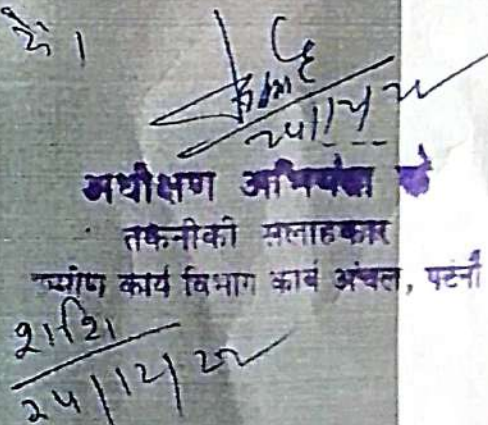 में।
24/12/22
अधीक्षण अभियंता के
तकनीकी सलाहकार
ग्रामीण कार्य विभाग कार्य अंचल, पटना
शशि
24/12/22